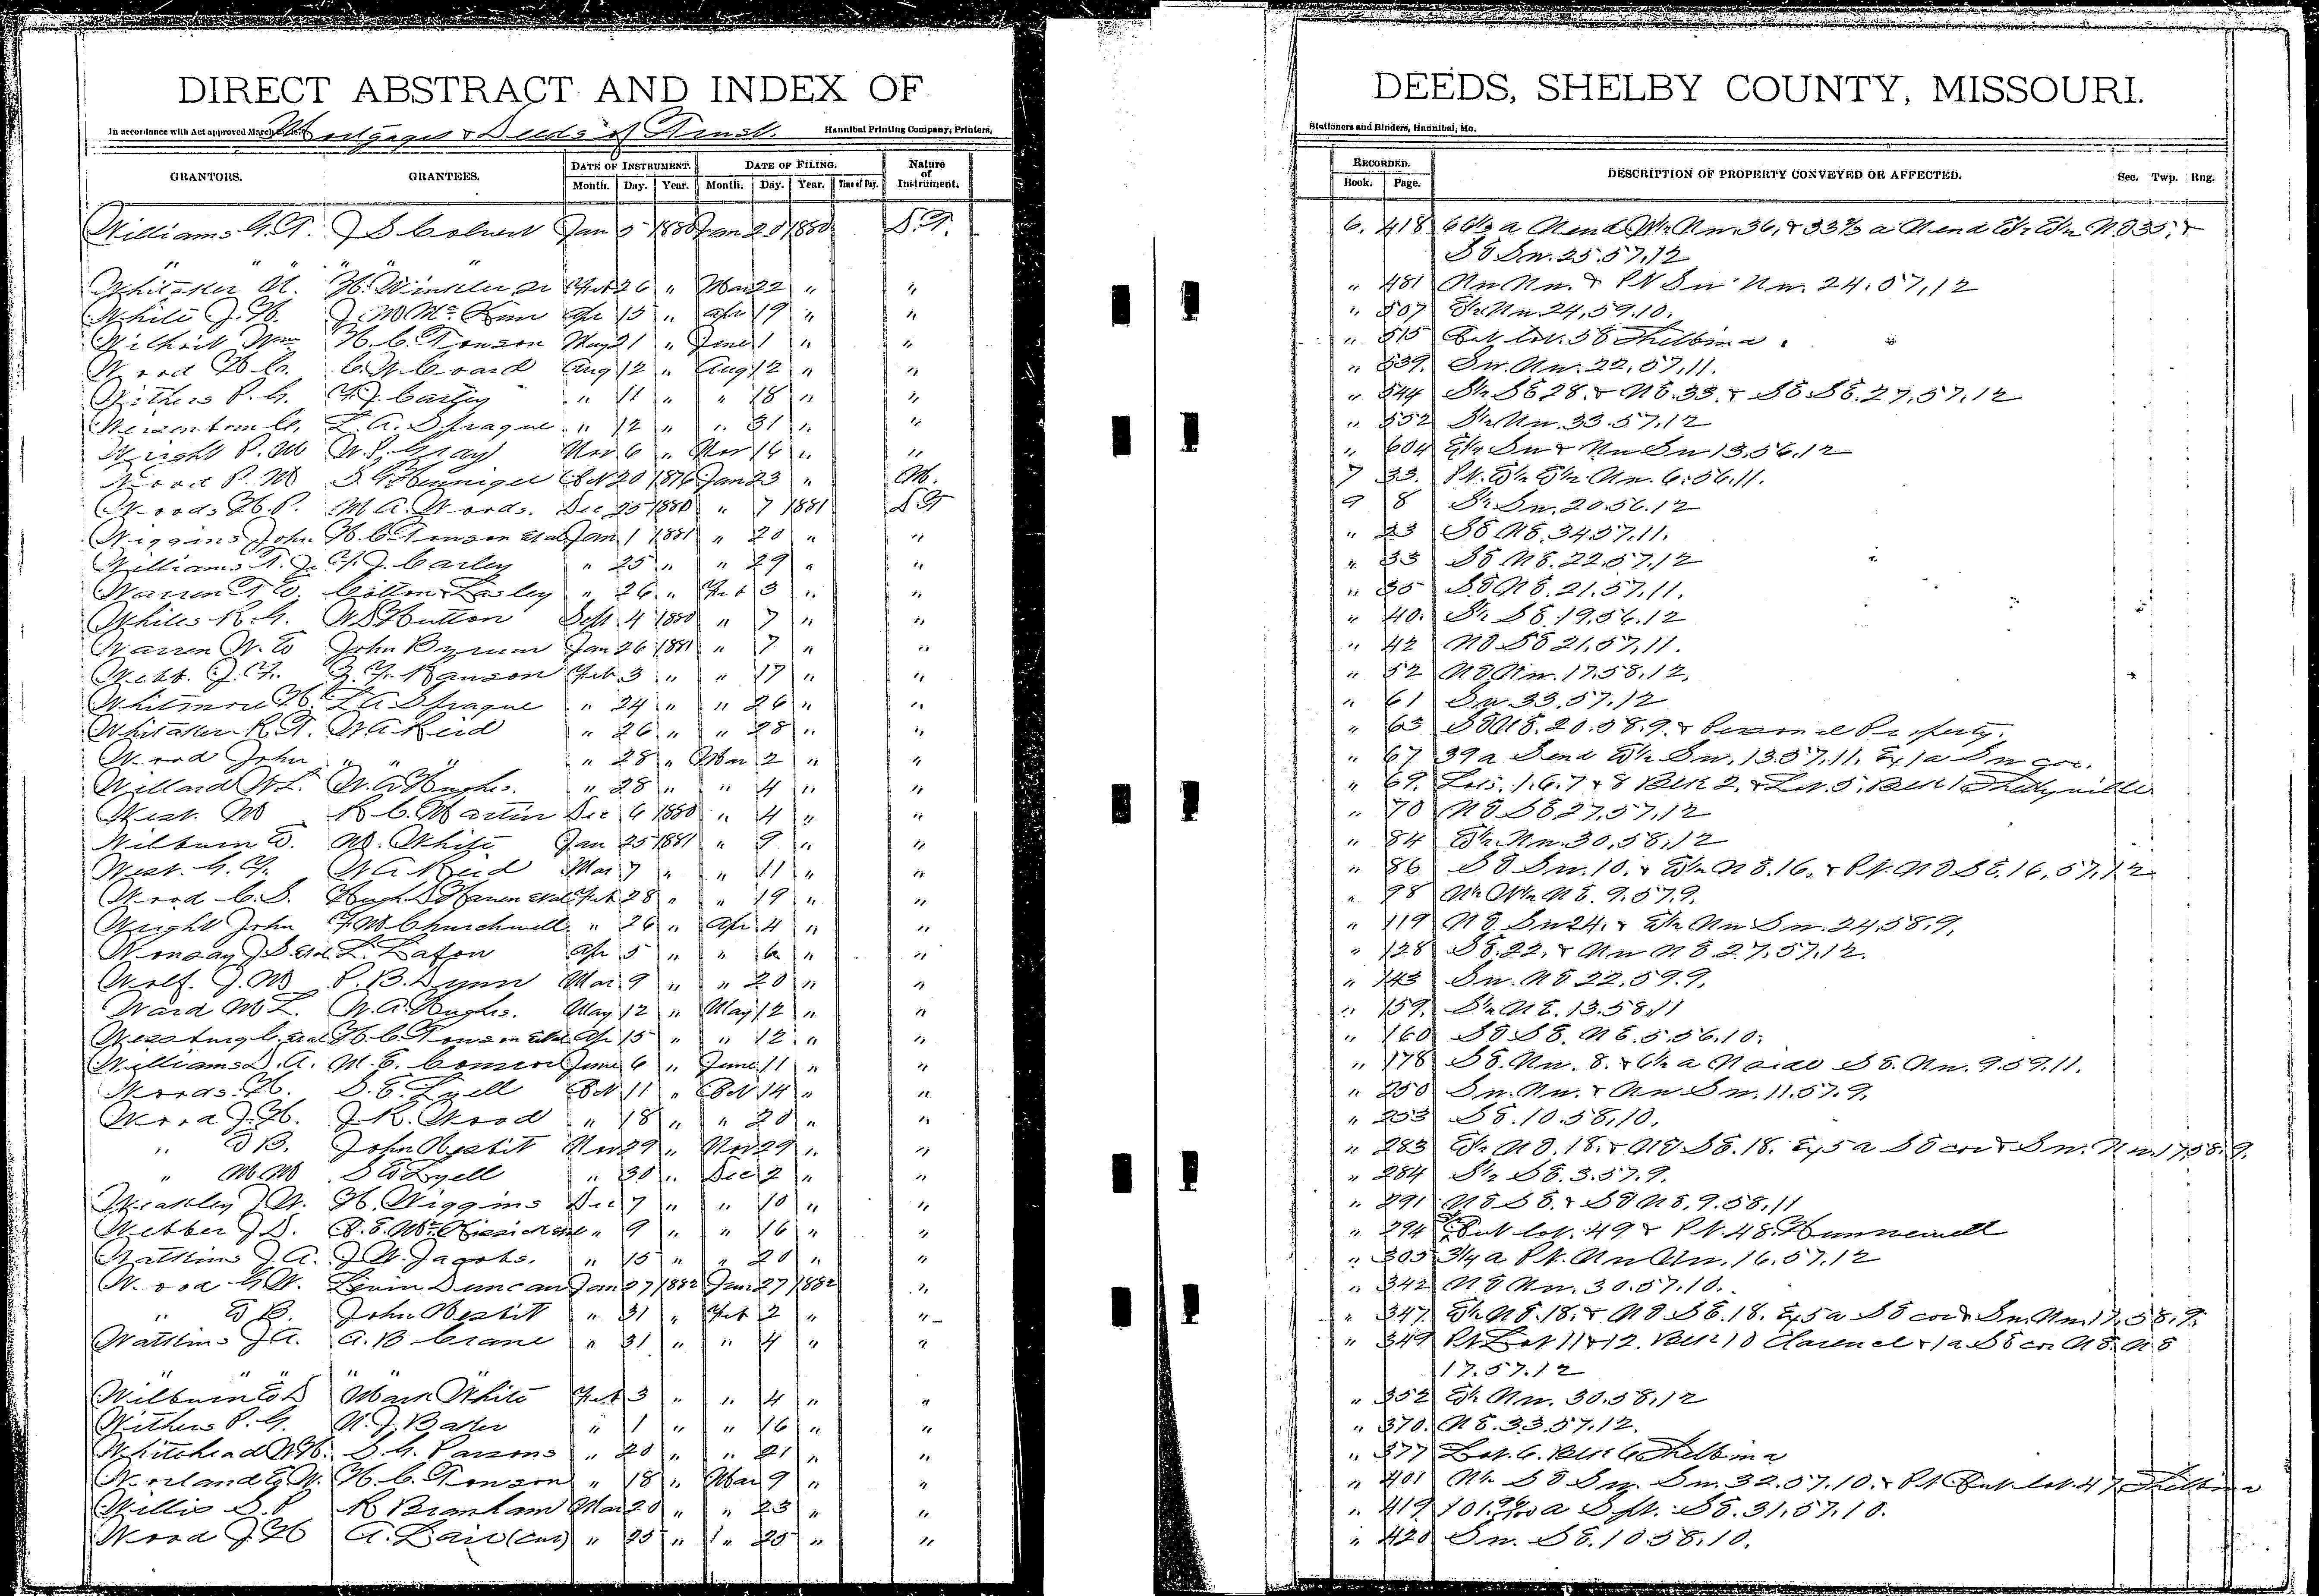 DIRECT ABSTRACT AND INDEX OF DEEDS, SHELBY COUNTY, MISSOURI.
In accordance with Act approved March Mortgages & Deeds of Trust. Hannibal Printing Company, Printers, Stationers and Binders, Hannibal, Mo.
GRANTORS. GRANTEES. DATE OF INSTRUMENT. DATE OF FILING. Nature of Instrument. RECORDED. DESCRIPTION OF PROPERTY CONVEYED OR AFFECTED. Sec. Twp. Rng.
Month. Day. Year. Month. Day. Year. Time of Day. Book. Page.
Williams G.T. J S Colvert Jan 5 1880 Jan 20 1880 D.T. 6. 418 66⅔ a N end W½ Nw. 36, & 33⅓ a N end E½ E½ NE 35, &
" " " " SE Sw. 25.57,12
Whitaker H. Winkler Feb 26 " Mar 22 " " " 481 Nw Nw. & Pt Sw Nw. 24.57,12
White J.H. J M Mc Apr 15 " Apr 19 " " " 507 E½ Nw 24,59.10.
Wilhoit Wm H.C. Tonson May 21 " June 1 " " " 515 Out Lot. 58 Shelbina
Wood C.W. Coard Aug 12 " Aug 12 " " " 539. Sw. Nw. 22.57.11.
Withers P.G. F.J. Carley " 11 " " 18 " " " 544 S½ SE 28. & NE. 33. & SE SE. 27.57.12
L.A. Sprague " 12 " " 31 " " " 552 S½ Nw. 33.57.12
Wright P.M W.P. Gray Nov 6 " Nov 16 " " " 604 E½ Sw & Nw Sw 13.56.12
Wood P.M Oct 20 1876 Jan 23 " M. 7 33. Pt. E½ E½ Nw. 6.56.11.
Woods H.P. M A. Woods. Dec 25 1880 " 7 1881 D T 9 8 S½ Sw. 20.56.12
Wiggins John H.C. Tonson etal Jan 1 1881 " 20 " " " 23 SE NE. 34.57.11.
Williams T. J. F.J. Carley " 25 " " 29 " " " 33 SE NE. 22.57.12
Warren T E. Cotton & Lasley " 26 " Feb 3 " " " 35 SE NE. 21.57.11.
Whiles R.G. W D Hutton Sept 4 1880 " 7 " " " 40. S½ SE. 19.56.12
Warren W. E John Byrum Jan 26 1881 " 7 " " " 42 NE SE 21.57.11.
Webb. J.F. Z.F. Ranson Feb 3 " " 17 " " " 52 NE Nw. 17.58.12.
Whitmore H. L A Sprague " 24 " " 26 " " " 61 Sw 33.57.12
Whitaker R.T. W A Reid " 26 " " 28 " " " 63 SE NE. 20.58.9. & Personal Property.
Wood John " " " " 28 " Mar 2 " " " 67 39 a S end E½ Sw. 13.57.11. Ex 1 a Sw cor.
Willard W.L. W.A Hughes. " 28 " " 4 " " " 69. Lots. 1.6.7 & 8 Blk 2. & Lot. 5. Blk 1 Shelbyville
West. M R C. Martin Dec 6 1880 " 4 " " " 70 NE SE 27.57.12
Wilburn E. M. White Jan 25 1881 " 9 " " " 84 E½ Nw. 30.58.12
West. G.F. W A Reid Mar 7 " " 11 " " " 86 SE Sw. 10. & E½ NE. 16. & Pt. NE SE. 16,57,12
Wood C.S. Hugh etal Feb 28 " " 19 " " " 98 W½ NE. 9.57.9.
Wright John F M Churchwell " 26 " Apr 4 " " " 119 NE Sw 24. & E½ Nw Sw. 24.58.9.
J S etal L. Lafon Apr 5 " " 6 " " " 128 SE. 22. & Nw NE 27.57.12.
Wolf. J.M P.B. Dynn Mar 9 " " 20 " " " 143 Sw. NE 22.59.9.
Ward M L. W.A. Hughes. May 12 " May 12 " " " 159. S½ NE. 13.58.11
etal H.C. Tonson etal Apr 15 " " 12 " " " 160 SE SE. NE. 5.56.10.
Williams D. A. M. E. June 6 " June 11 " " " 178 SE. Nw. 8. & 6½ a N side SE. Nw. 9.59.11.
Woods. H. S.E. Lyell Oct 11 " Oct 14 " " " 250 Sw. Nw. & Nw Sw. 11.57.9.
Wood J.H. J.R. Wood " 18 " " 20 " " " 253 SE. 10.58.10.
" E B. John Nesbit Nov 29 " Nov 29 " " " 283 E½ NE. 18. & NE SE. 18. Ex 5 a SE cor & Sw. Nw. 17.58.9.
" M.M S E Lyell " 30 " Dec 2 " " " 284 S½ SE. 3.57.9.
Weakley J W. H. Wiggins Dec 7 " " 10 " " " 291 NE SE. & SE NE. 9.58.11
Webber J D. etal " 9 " " 16 " " " 294 Out lot. 49 & Pt. 48. Hunnewell
Watkins J A. J W. Jacobs. " 15 " " 20 " " " 305 3¼ a Pt. Nw Nw. 16.57.12
Wood G W. Levin Duncan Jan 27 1882 Jan 27 1882 " " 342 NE Nw. 30.57.10.
" E B. John Nesbit " 31 " Feb 2 " " " 347 E½ NE. 18. & NE SE. 18. Ex 5 a SE cor & Sw. Nw. 17.58.9.
Watkins J A. A. B Crane " 31 " " 4 " " " 349 Pt Lot 11 & 12. Blk 10 Clarence & 1 a SE cor NE. NE
" " " " 17.57.12
Wilburn E D Mark White Feb 3 " " 4 " " " 352 E½ Nw. 30.58.12
Withers P. G. N.J. Baker " 1 " " 16 " " " 370. NE. 33.57.12.
Whitehead W H. S.G. Parsons " 20 " " 21 " " " 377 Lot. 6. Blk 6 Shelbina
Worland G W. H.C. Tonson " 18 " Mar 9 " " " 401 N½ SE Sw. Sw. 32.57.10. & Pt Out lot. 47 Shelbina
Willis S.P R Branham Mar 20 " " 23 " " " 419. 101. a S pt. SE. 31.57.10.
Wood J.H A. Lair (Cur) " 25 " " 25 " " " 420 Sw. SE. 10.58.10.